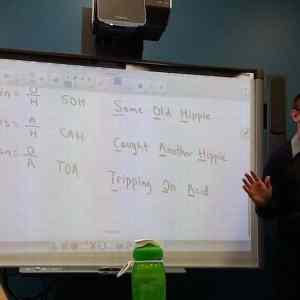 in = O/H SOH Some Old Hippie
s = A/H CAH Caught Another Hippie
an = O/A TOA Tripping On Acid